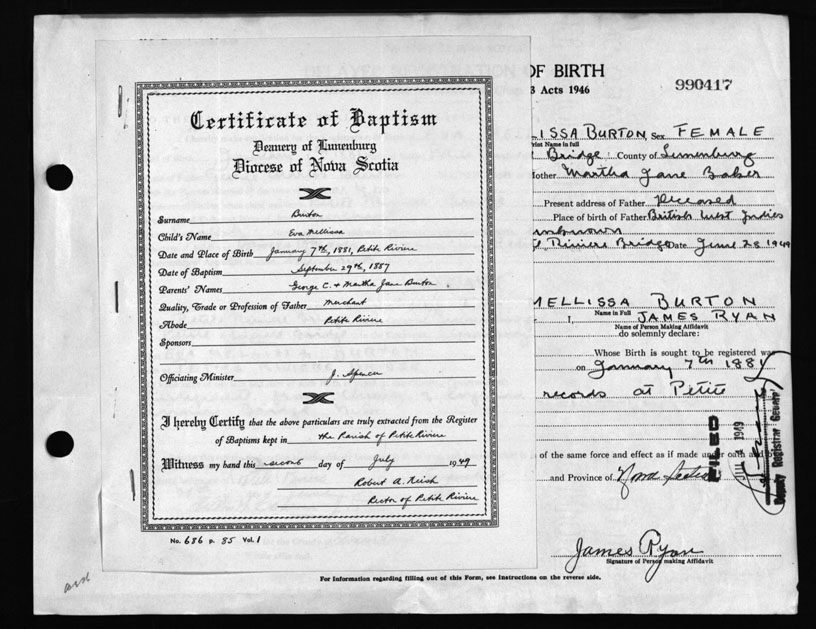 Certificate of Baptism
Deanery of Lunenburg
Diocese of Nova Scotia
Surname Burton
Child's Name Eva Mellissa
Date and Place of Birth January 7th, 1881, Petite Riviere
Date of Baptism September 29th, 1887
Parents' Names George C. & Martha Jane Burton
Quality, Trade or Profession of Father Merchant
Abode Petite Riviere
Sponsors
Officiating Minister J. Spencer
I hereby Certify that the above particulars are truly extracted from the Register
of Baptisms kept in the Parish of Petite Riviere
Witness my hand this second day of July 1949
Robert A.
Rector of Petite Riviere
No. 686 p. 85 Vol. 1
OF BIRTH
3 Acts 1946
990417
LISSA BURTON, Sex FEMALE
rint Name in full
Bridge County of Lunenburg
Mother Martha Jane Baker
Present address of Father Deceased
Place of birth of Father British West Indies
unknown
Riviere Bridge Date June 28 1949
MELLISSA BURTON
Name in Full
I, JAMES RYAN
Name of Person Making Affidavit
do solemnly declare:
Whose Birth is sought to be registered was
on January 7th 1881
records at Petite
FILED
JUL 1949
Deputy Registrar General
of the same force and effect as if made under oath and by
and Province of Nova Scotia
James Ryan
Signature of Person making Affidavit
For Information regarding filling out of this Form, see Instructions on the reverse side.